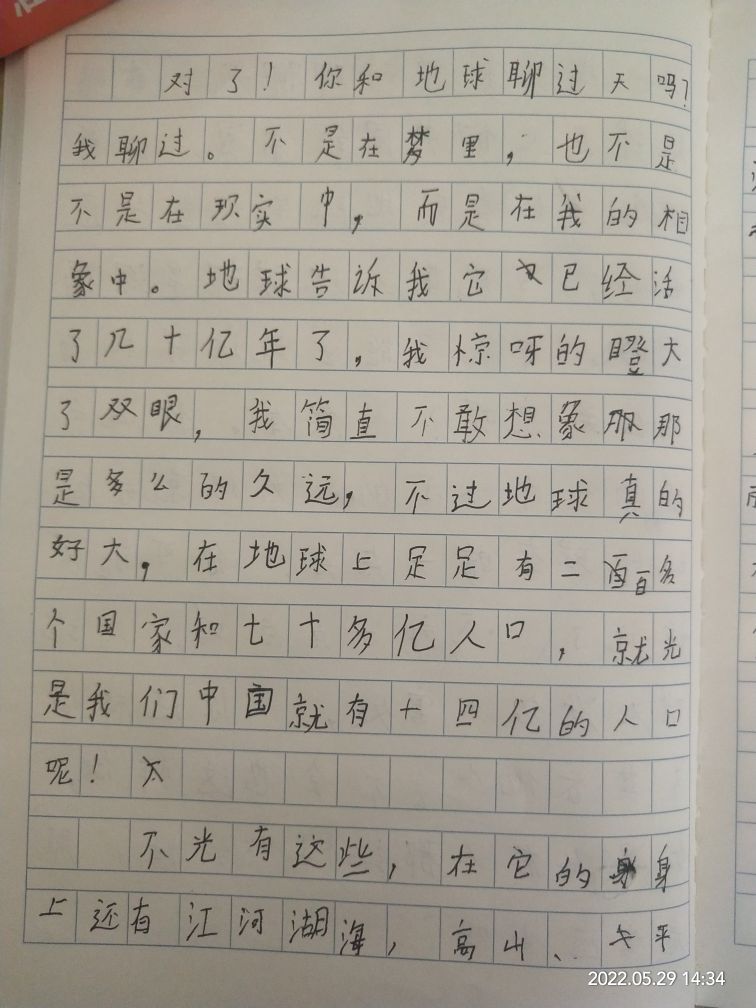 对了！你和地球聊过天吗？
我聊过。不是在梦里，也不是
不是在现实中，而是在我的相
象中。地球告诉我它已经活
了几十亿年了，我惊呀的瞪大
了双眼，我简直不敢想象那那
是多么的久远，不过地球真的
好大，在地球上足足有二百多
个国家和七十多亿人口，就光
是我们中国就有十四亿的人口
呢！
不光有这些，在它的身身
上还有江河湖海，高山、平
2022.05.29 14:34